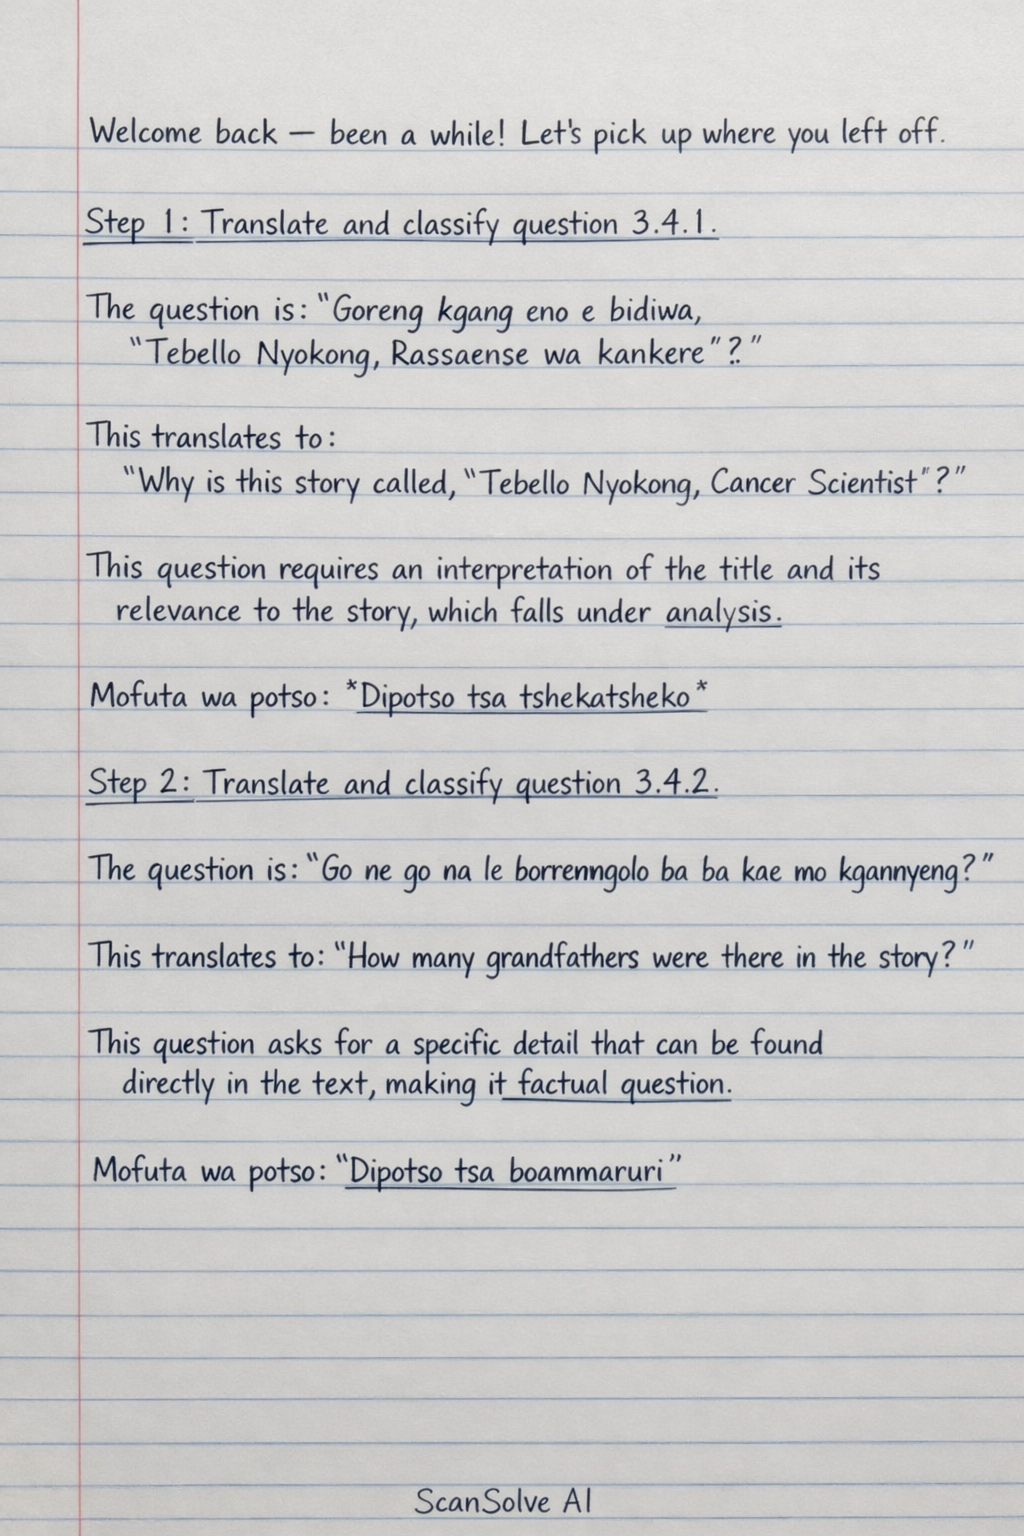 Welcome back — been a while! Let's pick up where you left off.
Step 1: Translate and classify question 3.4.1.
The question is: "Goreng kgang eno e bidiwa,
"Tebello Nyokong, Rassaense wa kankere"?"
This translates to:
"Why is this story called, "Tebello Nyokong, Cancer Scientist"?"
This question requires an interpretation of the title and its
relevance to the story, which falls under analysis.
Mofuta wa potso: *Dipotso tsa tshekatsheko*
Step 2: Translate and classify question 3.4.2.
The question is: "Go ne go na le borrenngolo ba ba kae mo kgannyeng?"
This translates to: "How many grandfathers were there in the story?"
This question asks for a specific detail that can be found
directly in the text, making it factual question.
Mofuta wa potso: "Dipotso tsa boammaruri"
ScanSolve AI